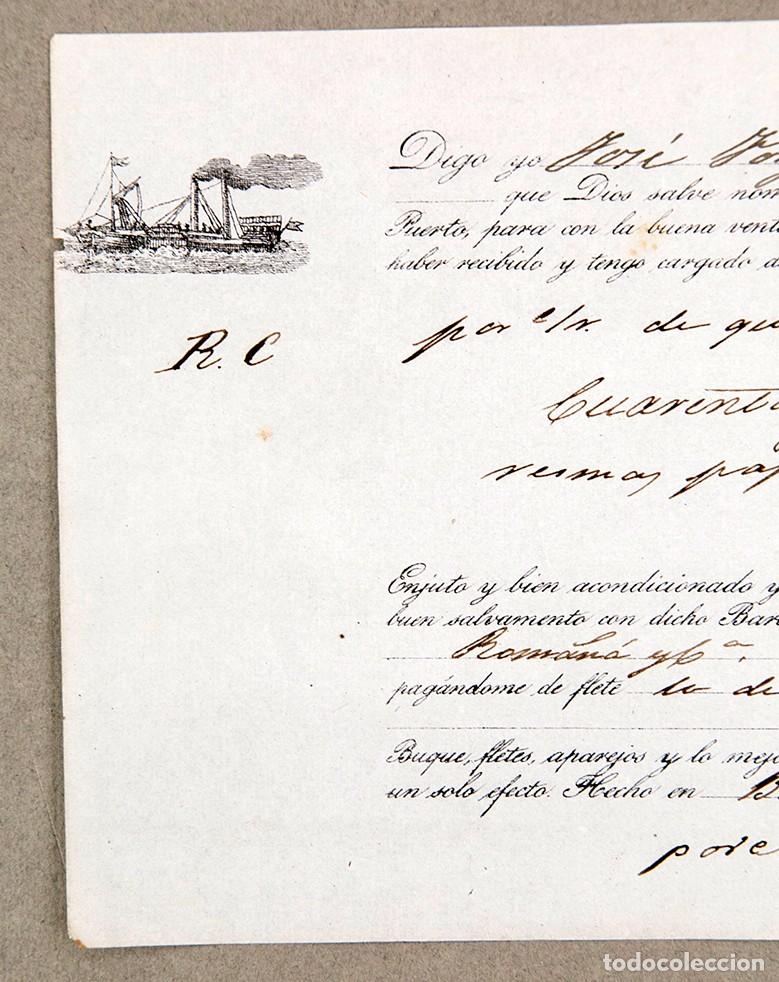 Digo yo José
que Dios salve nom
Puerto, para con la buena vent
haber recibido y tengo cargado d
R. C
por c/r. de qu
Cuarent
resmas pap
Enjuto y bien acondicionado y
buen salvamento con dicho Bar
Romaná y Cª.
pagándome de flete lo de
Buque, fletes, aparejos y lo mejo
un solo efecto. Hecho en B
todocoleccion